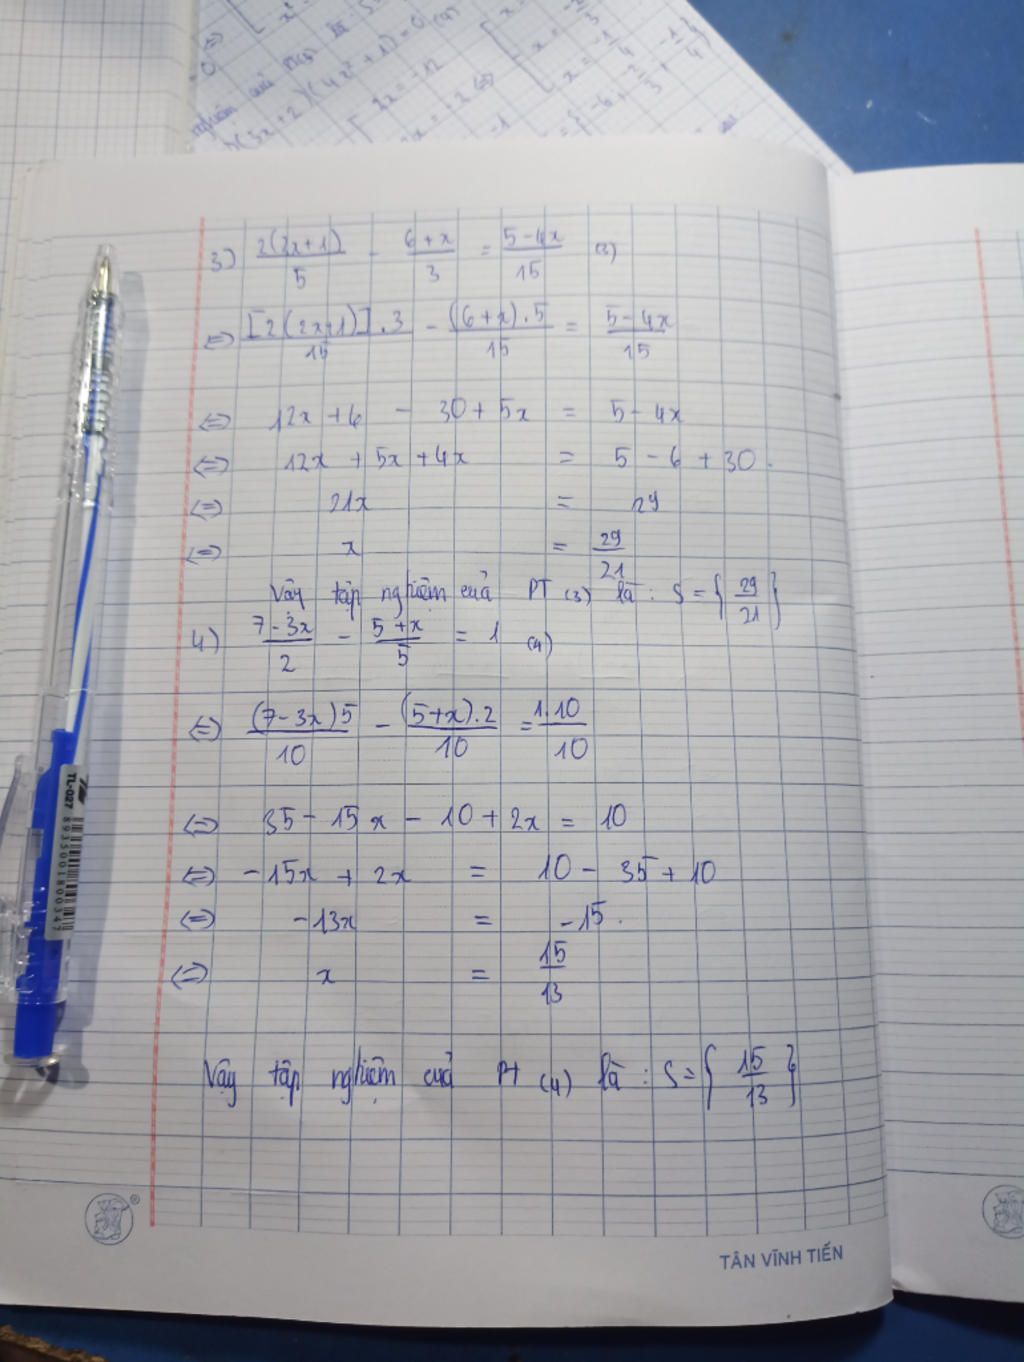 3) 2(2x+1)/5 - 6+x/3 = 5-4x/15 (3)
⇔ [2(2x+1)].3/15 - (6+x).5/15 = 5-4x/15
⇔ 12x +6 - 30 + 5x = 5 - 4x
⇔ 12x + 5x + 4x = 5 - 6 + 30.
⇔ 21x = 29
⇔ x = 29/21
Vậy tập nghiệm của PT (3) là : S = { 29/21 }
4) 7-3x/2 - 5+x/5 = 1 (4)
⇔ (7-3x)5/10 - (5+x).2/10 = 1.10/10
⇔ 35 - 15x - 10 + 2x = 10
⇔ -15x + 2x = 10 - 35 + 10
⇔ -13x = -15.
⇔ x = 15/13
Vậy tập nghiệm của PT (4) là : S = { 15/13 }
TÂN VĨNH TIẾN
TL-027
8935001800347